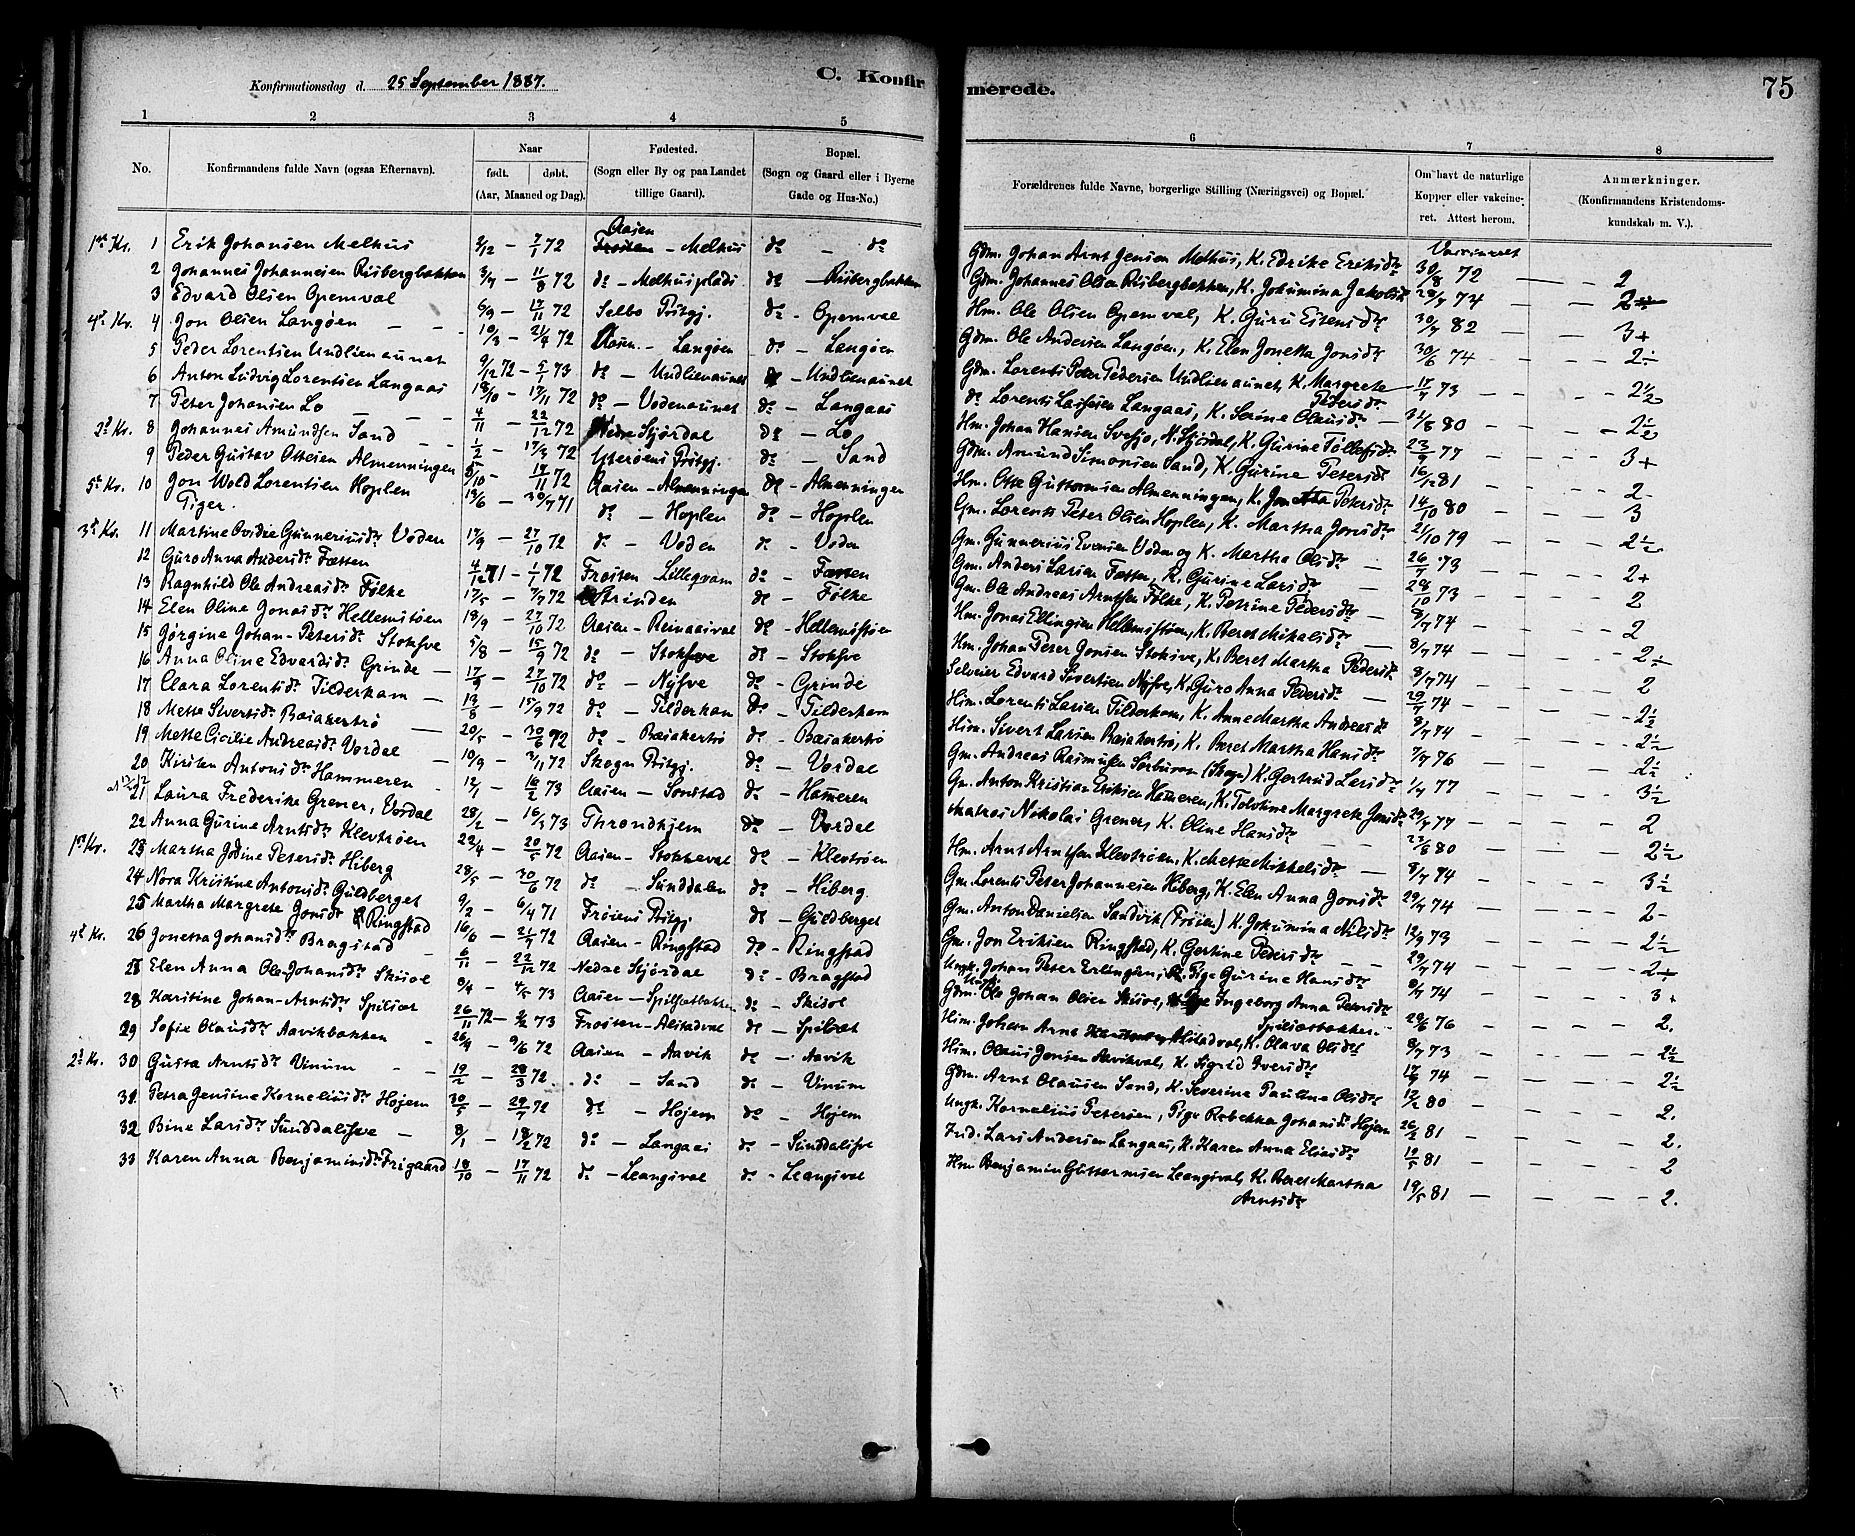 C. Konfirmerede.
75
Konfirmationsdag d. 25 September 1887.
1 2 3 4 5 6 7 8
No.
Konfirmandens fulde Navn (ogsaa Efternavn).
Naar
født. døbt.
(Aar, Maaned og Dag).
Fødested.
(Sogn eller By og paa Landet
tillige Gaard).
Bopæl.
(Sogn og Gaard eller i Byerne
Gade og Hus-No.)
Forældrenes fulde Navne, borgerlige Stilling (Næringsvei) og Bopæl.
Om havt de naturlige
Kopper eller vakcine-
ret. Attest herom.
Anmærkninger.
(Konfirmandens Kristendoms-
kundskab m. V.).
1 Erik Johansen Melhus 7/1 72 Aasen Frosten - Melhus do - do Gdm. Johan Arnt Jensen Melhus, K. Edrike Eriksdr Vaccineret 30/8 72 - - - 2
2 Johannes Johannesen Risbergbakken 3/7 - 11/8 72 do - Melhusplads do - Risbergbakken Gdm. Johannes Olsen Risbergbakken, K. Jokumina Jakobsdr 28/7 74
3 Edvard Olsen Opemval 6/9 - 17/11 72 Selbo Prstgj. do - Opemval Hm. Ole Olsen Opemval, K. Guru Estensdr 30/7 82 - - - 3+
4 Jon Olsen Langøen 10/3 - 21/4 72 Aasen - Langøen do - Langøen Gdm. Ole Andersen Langøen, K. Elen Jonetta Jonsdr 30/6 74
5 Peder Lorentsen Undlienaunet 9/12 72 - 5/1 73 do - Undlienaunet do - Undlienaunet Gdm. Lorents Peter Pedersen Undlienaunet, K. Margrete Pedersdr 17/7 73
6 Anton Ludvig Lorentsen Langaas 18/10 - 17/11 72 do - Vodenaunet do - Langaas do Lorents Lassesen Langaas, K. Serine Olausdr 31/8 80
7 Peter Johansen Lo 4/11 - 22/12 72 Nedre Stjørdal do - Lo Hm. Johan Hansen Svesjo, N. Stjørdal, K. Gurine Tollefsdr 23/9 77 - - - 3+
8 Johannes Amundsen Sand 1/2 - 17/3 72 Ytterøens Prstgj. do - Sand Gdm. Amund Simonsen Sand, K. Gurine Petersdr 16/12 81 - - - 2-
9 Peder Gustav Ottesen Almenningen 5/10 - 17/11 72 Aasen - Almenningen do - Almenningen Hm. Otte Guttormsen Almenningen, K. Jonetta Petersdr 14/10 80 - - - 3
10 Jon Wold Lorentsen Hoplen 13/6 - 30/7 71 do - Hoplen do - Hoplen Gm. Lorents Peter Olsen Hoplen, K. Martha Jonsdr 21/10 79
Piger.
11 Martine Ovidie Gunneriusdr Voden 17/9 - 27/10 72 do - Voden do - Voden Gm. Gunnerius Evensen Voden og K. Martha Olsdr 26/7 73 - - - 2+
12 Guro Anna Andersdr Fætten 4/12 71 - 1/1 72 Frosten - Lillegvam do - Fætten Gm. Anders Larsen Fætten, K. Gurine Larsdr 28/10 73 - - - 2
13 Ragnhild Ole Andreasdr Følke 17/5 - 7/7 72 Strinden do - Følke Gm. Ole Andreas Arntsen Følke, K. Petrine Pedersdr 8/7 74 - - - 2
14 Elen Oline Jonasdr Hellemstøen 18/9 - 27/10 72 Aasen - Reinaasval do - Hellemsstøen Hm. Jonas Ellingsen Hellemsstøen, K. Beret Mikalsdr 8/7 74
15 Jørgine Johan-Petersdr Stoksve 5/8 - 15/9 72 do - Stoksve do - Stoksve Hm. Johan Peter Jonsen Stoksve, K. Beret Martha Pedersdr 8/7 74 - - - 2
16 Anna Oline Edvardsdr Grinde 17/9 - 27/10 72 do - Nysve do - Grinde Selveier Edvard Sivertsen Nysve, K. Guro Anna Pedersdr 29/7 74
17 Clara Lorentsdr Tilderham 13/8 - 15/9 72 do - Tilderham do - Tilderham Hm. Lorents Larsen Tilderham, K. Anne Martha Andreasdr 8/7 74
18 Mette Sivertsdr Baiakertrø 20/5 - 30/6 72 do - Bæiakertrø do - Bæiakertrø Hm. Sivert Larsen Bæiakertrø, K. Beret Martha Hansdr 7/7 76
19 Mette Cicilie Andreasdr Vordal 10/9 - 3/11 72 Skogn Prstgj. do - Vordal Gm. Andreas Rasmussen (Skogn) K. Gertrud Larsdr 1/7 77 - - - 3½
20 Kirsten Antonsdr Hammeren 12/1 - 16/2 73 Aasen - Sonstad do - Hammeren Gm. Anton Kristian Eriksen Hammeren, K. Margrete Jonsdr 29/7 77 - - - 2
21 Laura Frederike Grener, Vordal 28/2 - 16/3 73 Throndhjem do - Vordal Matros Nikolai Grener, K. Oline Hansdr 22/6 80
22 Anna Gurine Arntsdr Klevtrøen 22/4 - 20/5 72 Aasen - Stokkeval do - Klevtrøen Hm. Arnt Arntsen Klevtrøen, K. Mette Mikkelsdr 8/7 74 - - - 3½
23 Martha Jodine Petersdr Hiberg 28/5 - 30/6 72 do - Sunddalen do - Hiberg Gm. Lorents Peter Johannesen Hiberg, K. Elen Anna Jonsdr 29/7 74 - - - 2-
24 Nora Kristine Antonsdr Guldberget 9/2 - 6/4 71 Frøiens Prstgj do - Guldberget Gm. Anton Danielsen Sandvik (Frøien) K. Jokumina Nilsdr 12/9 73
25 Martha Margrete Jonsdr Ringstad 16/6 - 21/7 72 Aasen - Ringstad do - Ringstad Gm. Jon Eriksen Ringstad, K. Gertine Pedersdr 29/7 74
26 Jonetta Johansdr Bragstad 6/11 - 22/12 72 Nedre Stjørdal do - Bragstad Ungk. Johan Peter Erlingsen, Pige Gurine Hansdr 8/7 74 - - - 3+
28 Elen Anna Ole-Johansdr Skisol 8/4 - 4/5 73 Aasen - Spilsætbakken do - Skisol Ungk. Ole Johan Olsen Skisol, Pige Ingeborg Anna Petersdr Spilsætbakken 29/6 76 - - - 2.
28 Karstine Johan-Arntsdr Spilsæt 26/11 72 - 2/2 73 Frosten - Alstadval do - Spilsæt Hm. Johan Arnt Alstadval, K. Olava Olsdr 8/7 73
29 Sofie Olausdr Aavikbakken 26/4 - 9/6 72 Aasen - Aavik do - Aavik Hm. Olaus Jensen Aavikval, K. Sigrid Iversdr 17/9 74
30 Gusta Arntsdr Vinum 19/2 - 28/3 72 do - Sand do - Vinum Gdm. Arnt Olausen Sand, K. Severine Pauline Olsdr 12/2 80 - - - 2.
31 Petra Jensine Korneliusdr Højem 30/5 - 29/7 72 do - Højem do - Højem Ungk. Kornelius Petersen, Pige Rebekka Johansdr Højem 26/2 81 - - - 2.
32 Bine Larsdr Sunddalsve 8/1 - 18/2 72 do - Langaas do - Sunddalsve Ind. Lars Andersen Langaas, K. Karen Anna Eliasdr 19/5 81 - - - 2
33 Karen Anna Benjaminsdr Frigaard 18/10 - 17/11 72 do - Leangsval do - Leangsval Hm Benjamin Guttormsen Leangsval, K. Beret Martha Arntsdr 19/5 81 - - - 2.